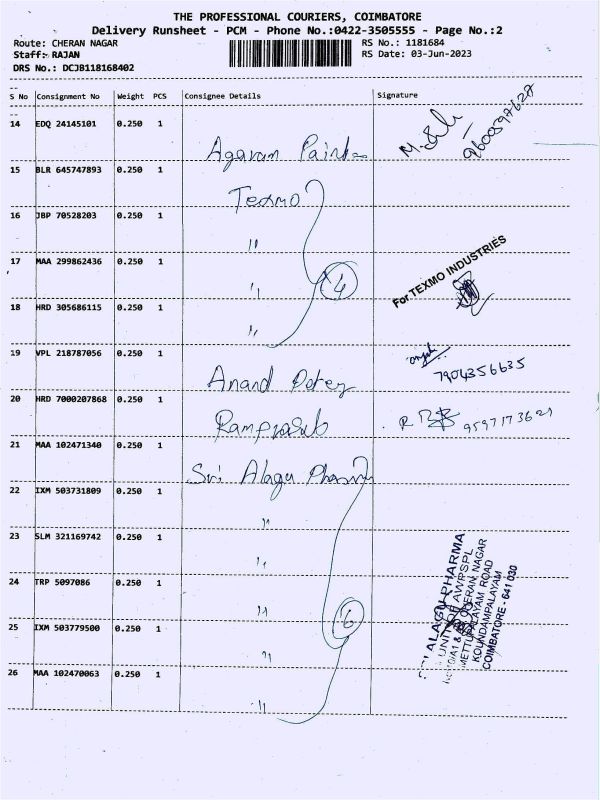 THE PROFESSIONAL COURIERS, COIMBATORE
Delivery Runsheet - PCM - Phone No.:0422-3505555 - Page No.:2
Route: CHERAN NAGAR RS No.: 1181684
Staff: RAJAN RS Date: 03-Jun-2023
DRS No.: DCJB118168402
S No Consignment No Weight PCS Consignee Details Signature
14 EDQ 24145101 0.250 1 Agaram Paints
9600597627
15 BLR 645747893 0.250 1 Texmo
16 JBP 70528203 0.250 1 "
17 MAA 299862436 0.250 1 " 4 For TEXMO INDUSTRIES
18 HRD 305686115 0.250 1 "
19 VPL 218787056 0.250 1 Anand
7904356635
20 HRD 7000207868 0.250 1 Ramprasub
9597173621
21 MAA 102471340 0.250 1 Sri Alagu Pharma
22 IXM 503731809 0.250 1 "
23 SLM 321169742 0.250 1 "
24 TRP 5097086 0.250 1 "
25 IXM 503779500 0.250 1 " 6
26 MAA 102470063 0.250 1 "
ALAGU PHARMA
CHERAN NAGAR
METTUPALAYAM ROAD
KOUNDAMPALAYAM
COIMBATORE - 641 030